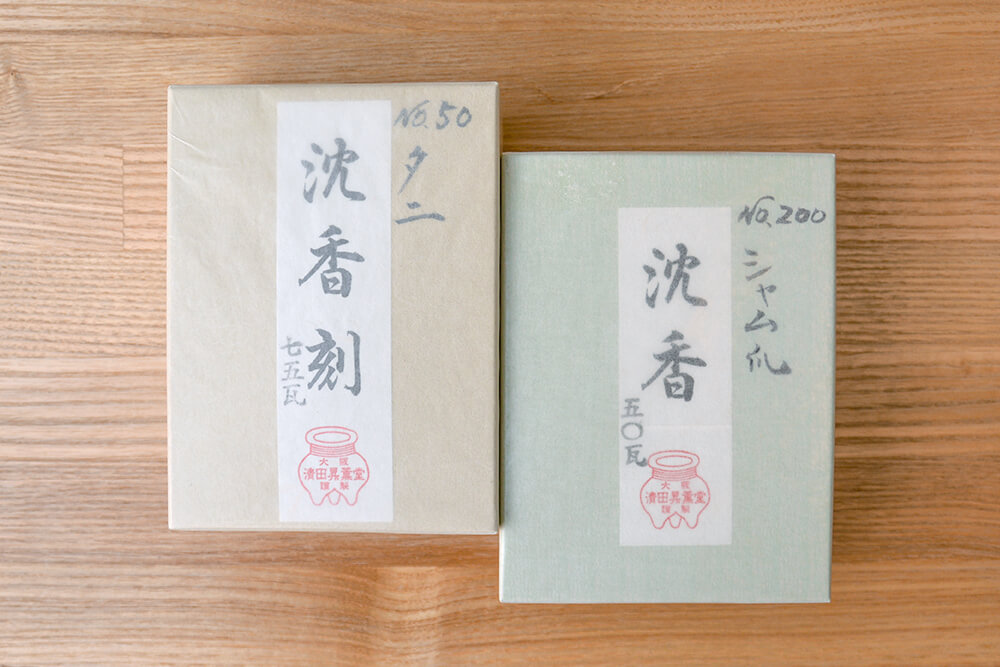 No.50
タニ
沈香刻
七五瓦
大阪
濱田昇薫堂
謹製
No.200
シャム爪
沈香
五〇瓦
大阪
濱田昇薫堂
謹製